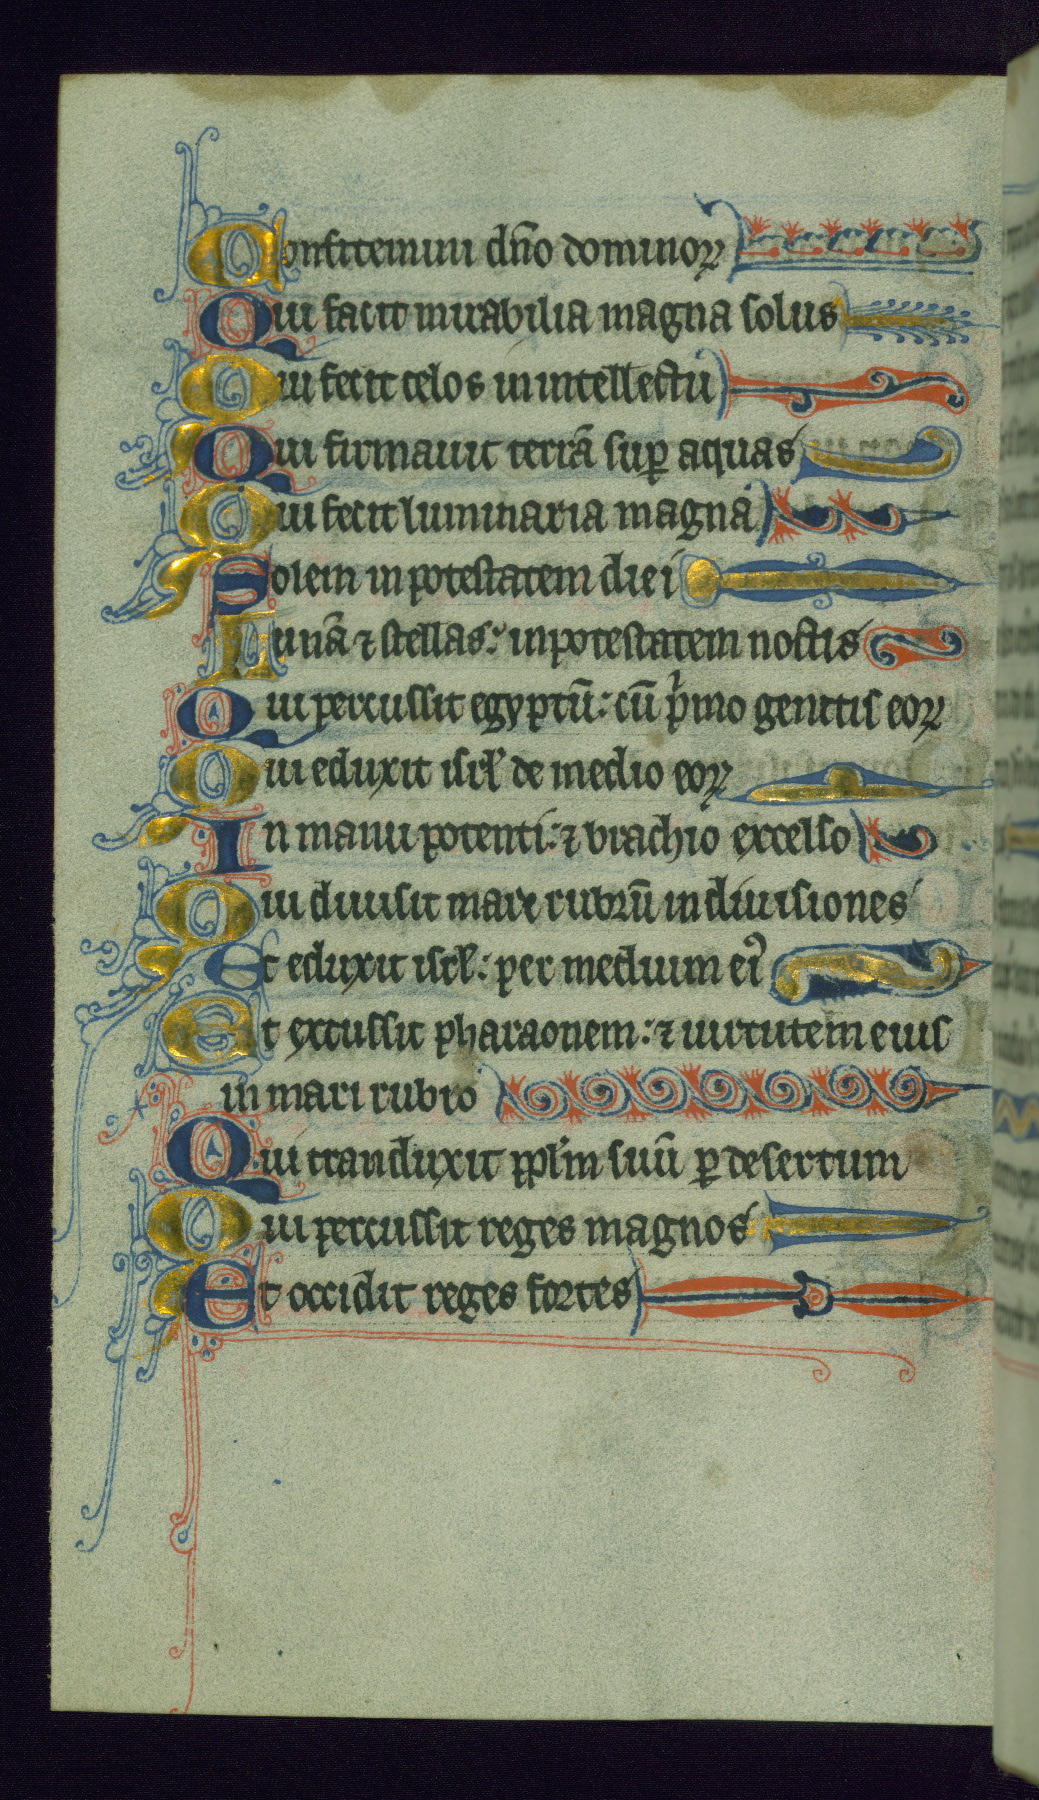 Confitemini dn̄o dominoꝝ
Qui facit mirabilia magna solus
Qui fecit celos in intellectu
Qui firmauit terrā suꝑ aquas
Qui fecit luminaria magna
Solem in potestatem diei
Lunā ⁊ stellas: in potestatem noctis
Qui percussit egyptū: cū pͥmo genitis eoꝝ
Qui eduxit isrl̄ de medio eoꝝ
In manu potenti: ⁊ brachio excelso
Qui diuisit mare rubrū in diuisiones
Et eduxit isrl̄: per medium eiꝰ
Et excussit pharaonem: ⁊ uirtutem eius
in mari rubro
Qui tranduxit ppl̄m suū ꝑ desertum
Qui percussit reges magnos
Et occidit reges fortes